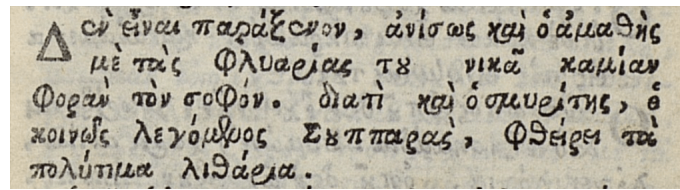 Δὲν εἶναι παράξενον, ἀνίσως καὶ ὁ ἀμαθὴς
μὲ ταὶς Φλυαρίας του νικᾷ καμίαν
Φορὰν τὸν σοφόν. διατὶ καὶ ὁ σμυρίτης, ὁ
κοινῶς λεγόμενος Σουππαρας, Φθείρει τὰ
πολύτιμα λιθάρια.